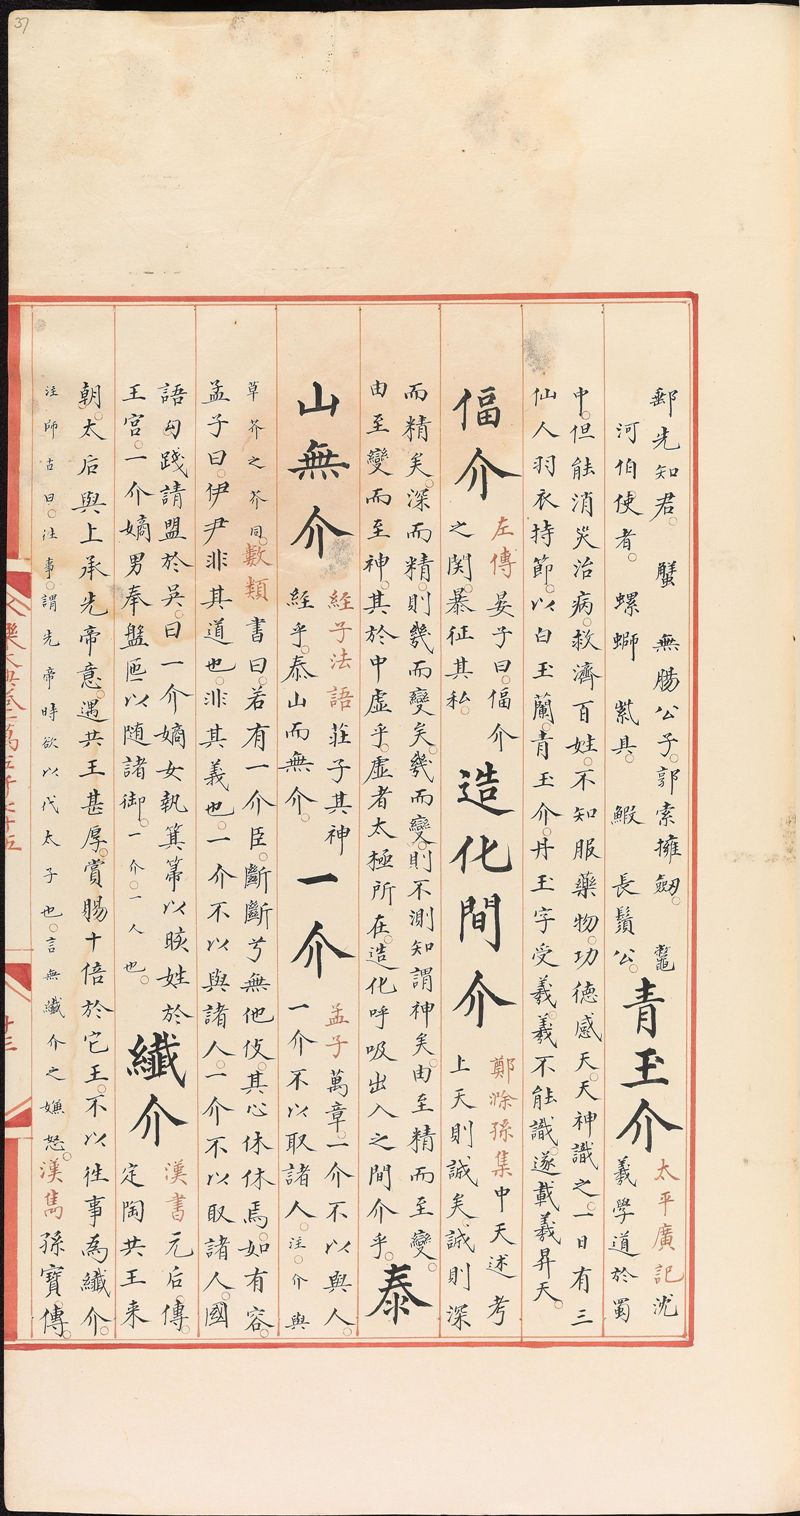 郵先知君。 蟹 無腸公子。郭索擁劒。 鼈
河伯使者。 螺螄 紫具。 鰕 長鬚公。
青玉介
太平廣記沈
羲學道於蜀
中。但能消災治病。救濟百姓。不知服藥物。功德感天。天神識之。一日有三
仙人羽衣持節。以白玉蘭。青玉介。丹玉字受羲。羲不能識。遂載羲昇天。
偪介
左傳 晏子曰。偪介
之関。暴征其私。
造化間介
鄭滁孫集中天述考
上天則誠矣。誠則深
而精矣。深而精。則幾而變矣。幾而變。則不測知謂神矣。由至精而至變。
由至變而至神。其於中虛乎。虛者太極所在。造化呼吸出入之間介乎。
泰
山無介
經子法語莊子其神
經乎。泰山而無介。
一介
孟子萬章。一介不以與人。
一介不以取諸人。注。介與
草芥之芥同。數類書曰。若有一介臣。斷斷兮無他伎。其心休休焉。如有容。
孟子曰。伊尹非其道也。非其義也。一介不以與諸人。一介不以取諸人。國
語勾踐請盟於吳。曰一介嫡女執箕箒以晐姓於
王宮。一介嫡男奉盤匜以随諸御。一介。一人也。
纖介
漢書元后傳。
定陶共王来
朝。太后與上承先帝意。遇共王甚厚。賞賜十倍於它王。不以徃事為纖介。
注師古曰。徃事。謂先帝時欲以代太子也。言無纖介之嫌怒。漢雋孫寶傳。
37